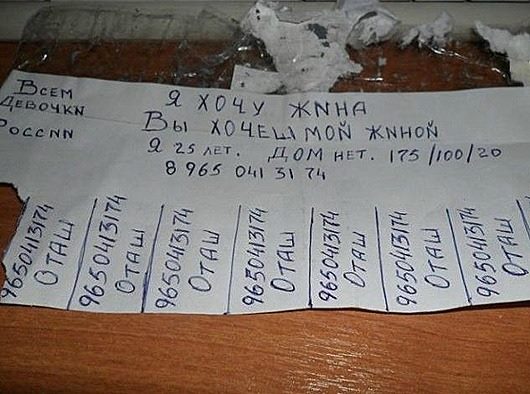 Всем
девочки
России
Я хочу жина
Вы хочеш мой жиной
Я 25 лет. Дом нет. 175/100/20
8 965 041 31 74
9650413174
Оташ
9650413174
Оташ
9650413174
Оташ
9650413174
Оташ
9650413174
Оташ
9650413174
Оташ
9650413174
Оташ